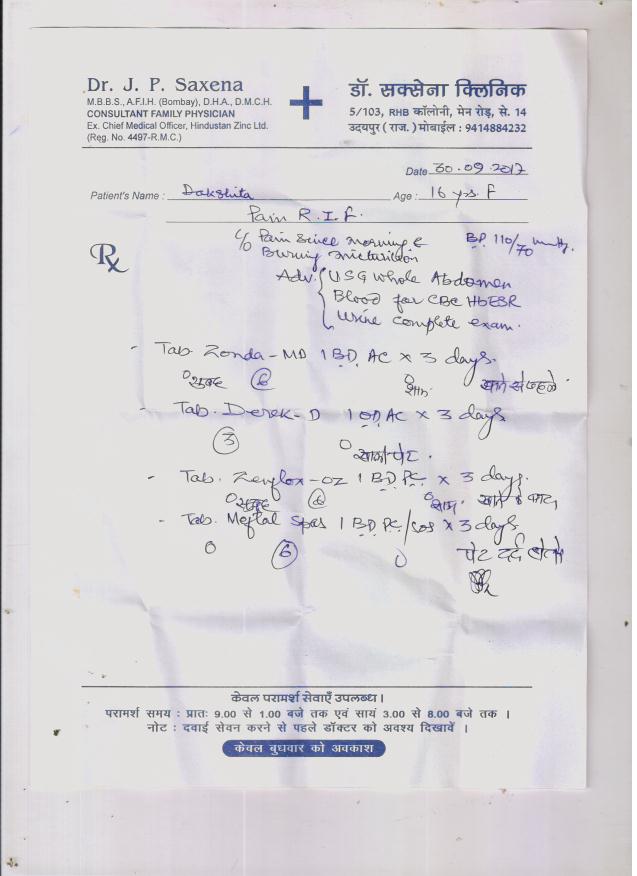 Dr. J. P. Saxena
M.B.B.S., A.F.I.H. (Bombay), D.H.A., D.M.C.H.
CONSULTANT FAMILY PHYSICIAN
Ex. Chief Medical Officer, Hindustan Zinc Ltd.
(Reg. No. 4497-R.M.C.)
डॉ. सक्सेना क्लिनिक
5/103, RHB कॉलोनी, मेन रोड़, से. 14
उदयपुर ( राज. ) मोबाईल : 9414884232
Date 30.09.2017
Patient's Name : Dakshita Age : 16 yrs. F
Pain R.I.F.
Rx
c/o Pain since morning c
Burning micturition
BP. 110/70 mmHg.
Adv. USG whole Abdomen
Blood for CBC Hb ESR
Urine complete exam.
- Tab. Zonda-MD 1 BD AC x 3 days.
सुबह 6 शाम खाने से पहले
- Tab. Derek-D 1 OD AC x 3 days
3 खाली पेट.
- Tab. Zenflox-OZ 1 BD PC x 3 days.
सुबह 6 शाम खाने के बाद
- Tab. Meftal Spas 1 BD PC/SOS x 3 days
6 पेट दर्द हो तो
केवल परामर्श सेवाएँ उपलब्ध।
परामर्श समय : प्रातः 9.00 से 1.00 बजे तक एवं सायं 3.00 से 8.00 बजे तक ।
नोट : दवाई सेवन करने से पहले डॉक्टर को अवश्य दिखावें ।
केवल बुधवार को अवकाश